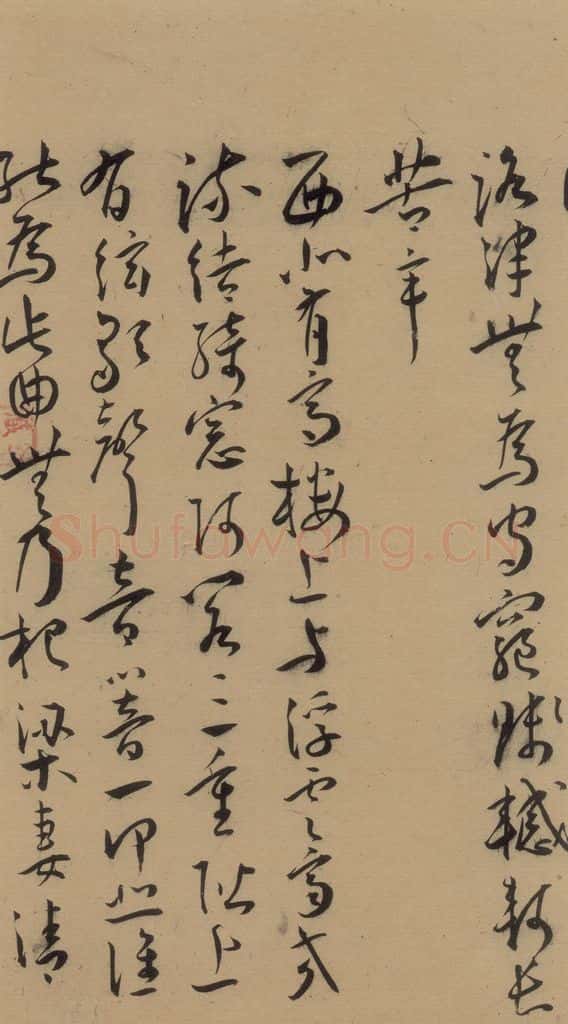 路津無為守窮賤轗軻長
苦辛
西北有高樓上与浮雲齊交
疏結綺窓阿閣三重階上
有絃歌聲音響一何悲誰
能為此曲無乃杞梁妻清
Shufawang.CN